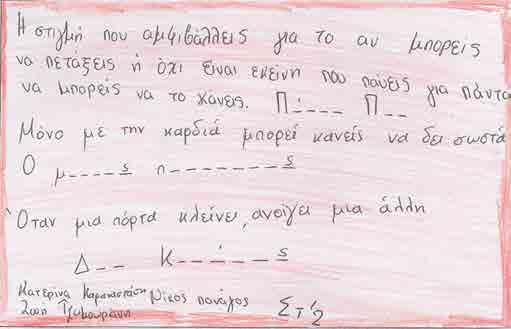 Η στιγμή που αμφιβάλλεις για το αν μπορείς
να πετάξεις ή όχι είναι εκείνη που παύεις για πάντα
να μπορείς να το κάνεις. Π _ _ _ _ Π _ _
Μόνο με την καρδιά μπορεί κανείς να δει σωστά
Ο μ _ _ _ _ ς π _ _ _ _ _ _ _ _ ς
Όταν μια πόρτα κλείνει, ανοίγει μια άλλη
Δ _ _ Κ _ _ _ _ _ ς
Κατερίνα Νίκος
Ζωή ΣΤ'2